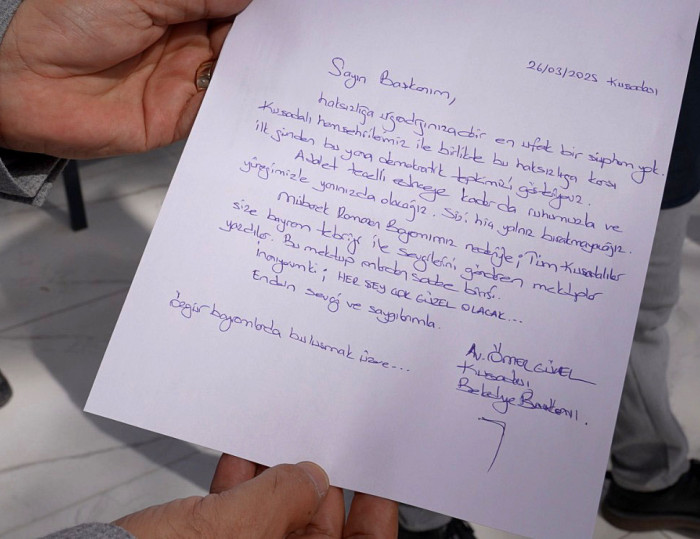 26/03/2025 Kuşadası
Sayın Başkanım,
haksızlığa uğradığınıza dair en ufak bir şüphem yok.
Kuşadalı hemşehrilerimiz ile birlikte bu haksızlığa karşı
ilk günden bu yana demokratik tepkimizi gösteriyoruz.
Adalet tecelli edinceye kadar da ruhumuzla ve
yüreğimizle yanınızda olacağız. Sizi hiç yalnız bırakmayacağız.
Mübarek Ramazan Bayramımız nedeniyle; Tüm Kuşadalılar
size bayram tebriği ile sevgilerini gönderen mektuplar
yazdılar. Bu mektup onlardan sadece birisi.
İnanıyorum ki; HER ŞEY ÇOK GÜZEL OLACAK...
En derin sevgi ve saygılarımla.
Özgür bayramlarda buluşmak üzere...
Av. ÖMER GÜNEL
Kuşadası
Belediye Başkanı.